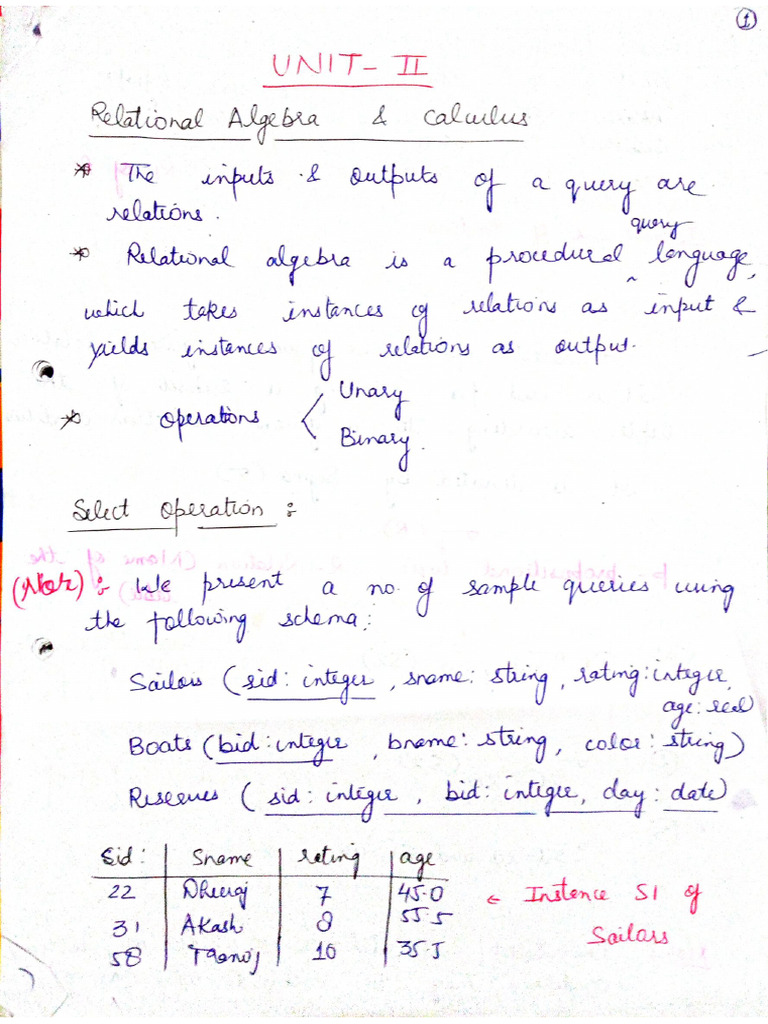 1
UNIT- II
Relational Algebra & Calculus
* The inputs & outputs of a query are
relations.
query
* Relational algebra is a procedural ^ language,
which takes instances of relations as input &
yields instances of relations as output.
Unary
* Operations <
Binary.
Select Operation :
(Note) : We present a no. of sample queries using
the following schema:
Sailors (sid: integer, sname: string, rating: integer,
age: real)
Boats (bid: integer, bname: string, color: string)
Reserves (sid: integer, bid: integer, day: date)
Sid: | Sname | rating | age
22 | Dheeraj | 7 | 45.0 ← Instance S1 of
31 | Akash | 8 | 55.5 Sailors
58 | 10 | 35.5